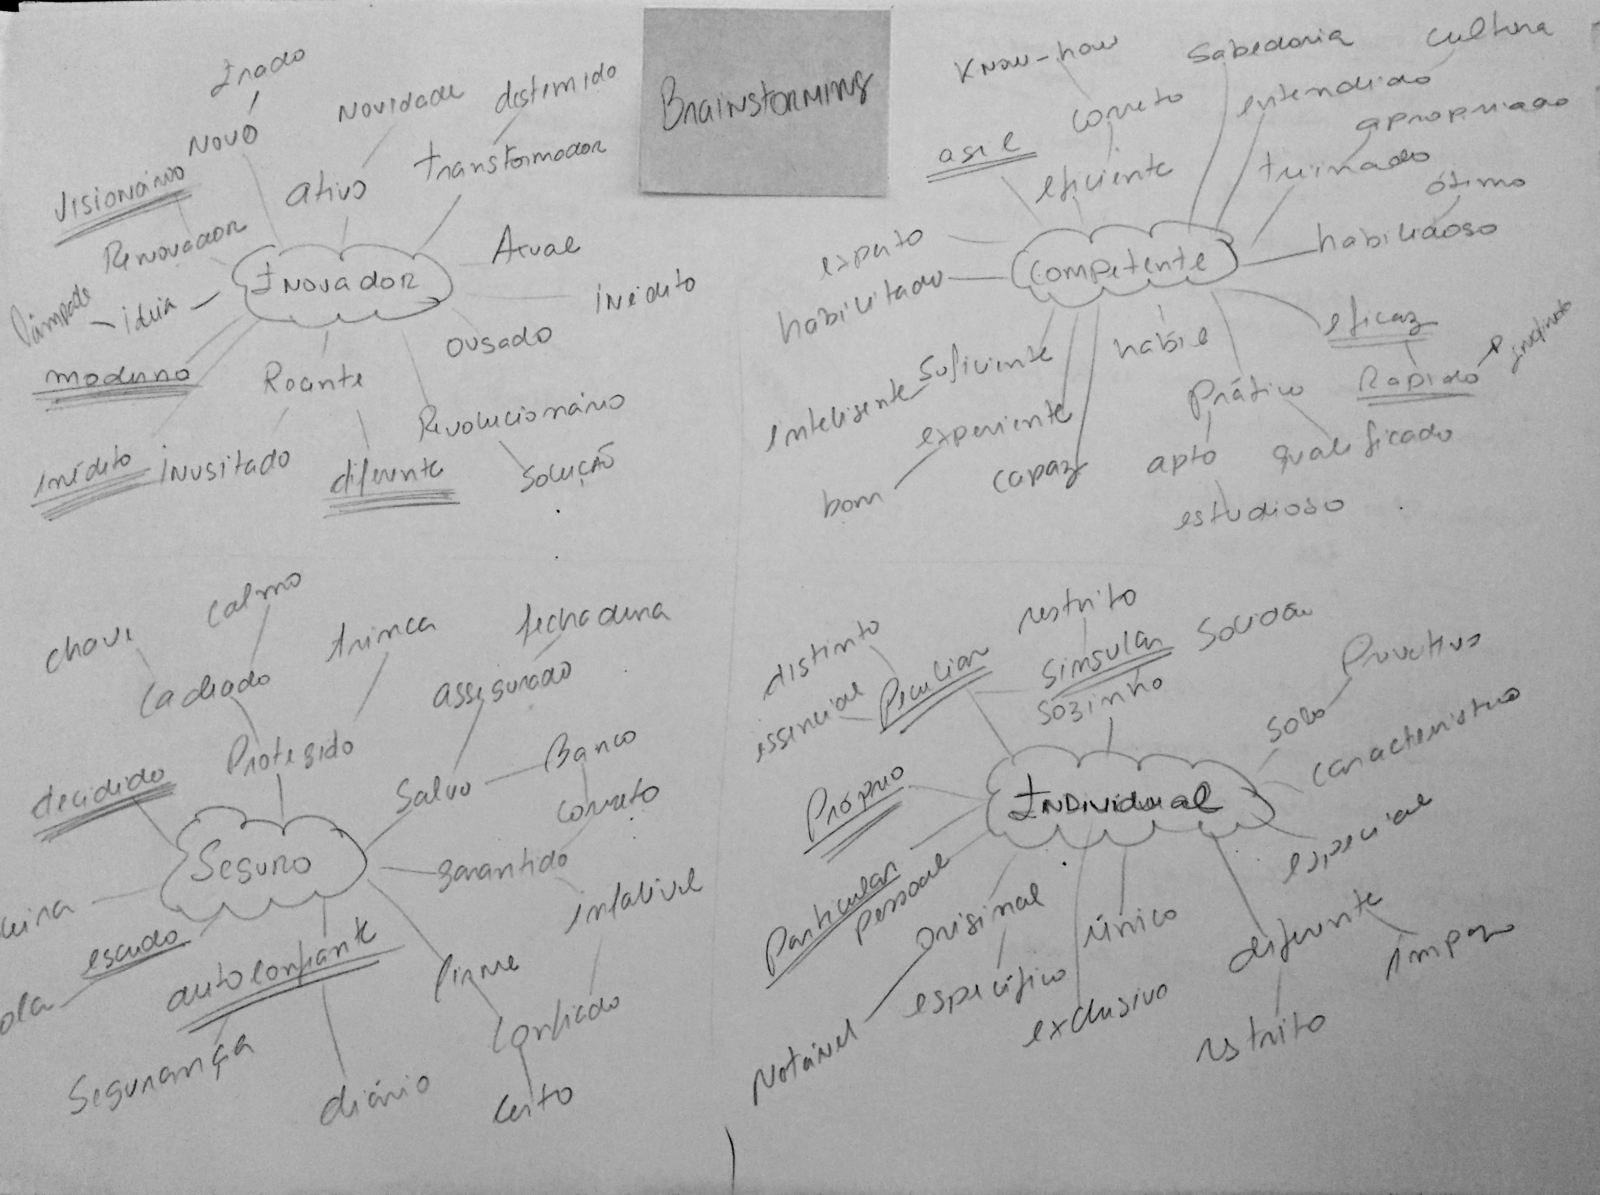 Brainstorming
Irado
Novo
Novidade
destemido
transformador
Visionário
ativo
Renovador
Inovador
Atual
Lâmpada
ideia
inédito
ousado
moderno
Revolucionário
inédito
inusitado
diferente
Solução
Know-how
Sabedoria
cultura
correto
entendido
apropriado
agil
eficiente
treinado
ótimo
habilidoso
experto
Competente
habilitado
eficaz
Suficiente
hábil
Rapido
Inteligente
experiente
Prático
bom
capaz
apto
qualificado
estudioso
chave
calmo
trinca
fechadura
cadeado
assegurado
decidido
Protegido
Salvo
Banco
correto
Seguro
garantido
infalível
escudo
autoconfiante
firme
Segurança
confiado
diário
certo
distinto
restrito
essencial
Peculiar
Singular
Solidão
sozinho
solo
Privativo
característico
Próprio
Individual
especial
Particular
pessoal
original
único
diferente
Impar
específico
Notável
exclusivo
restrito